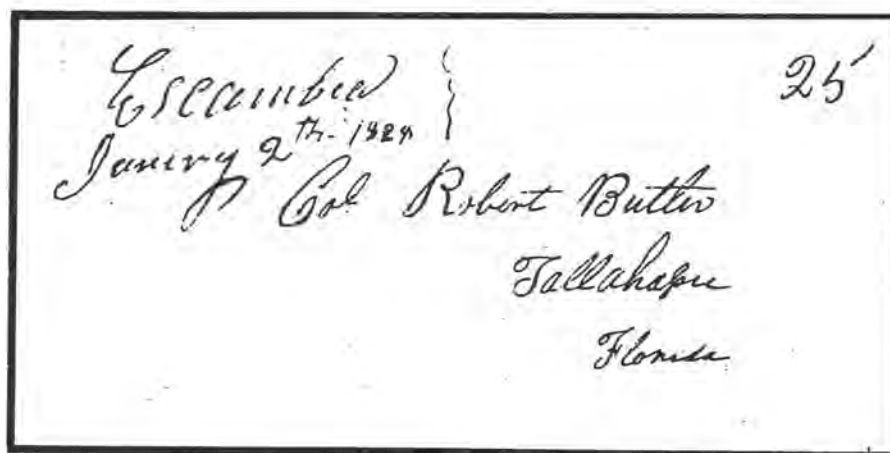 Escambia
25
January 2th. 1829
Col Robert Butler
Tallahassee
Florida